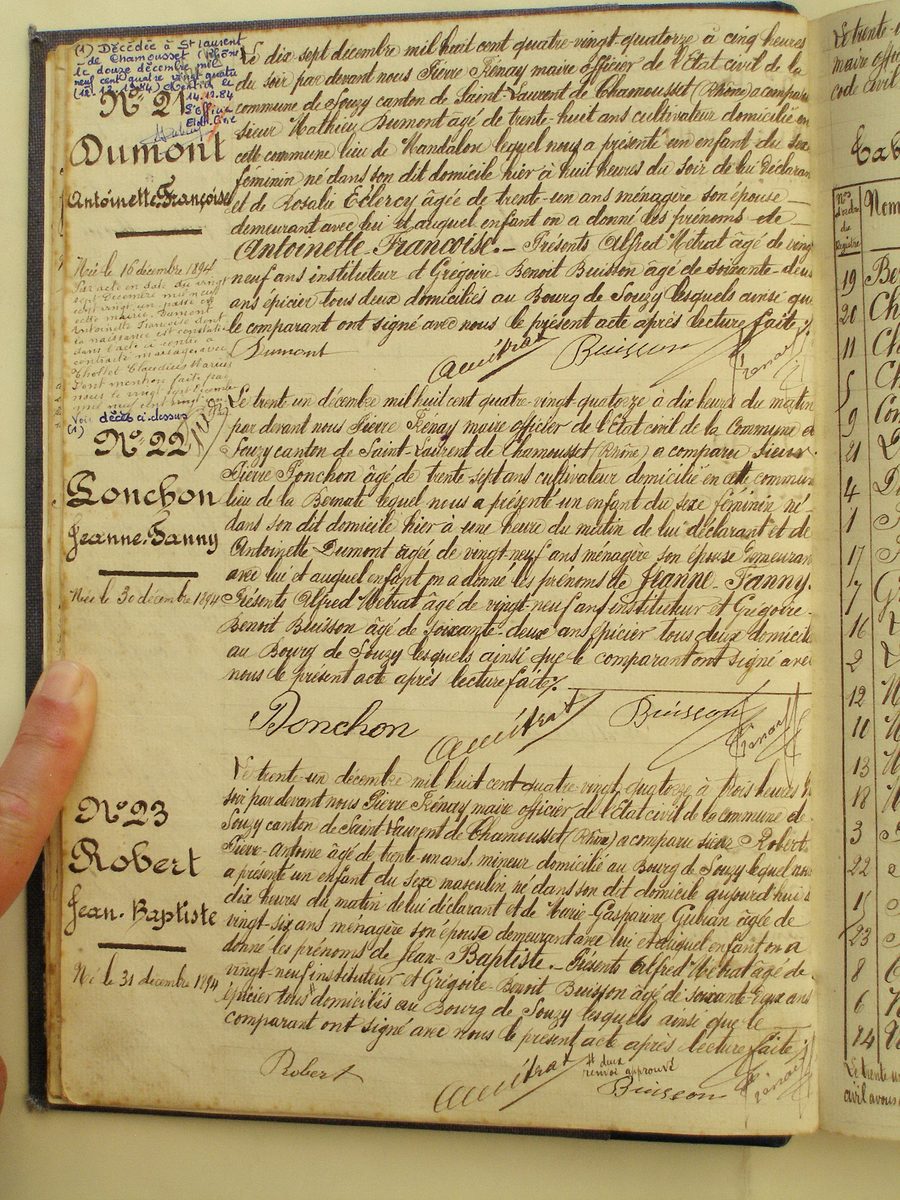 (1) Décédée à St Laurent
de Chamousset (Rhône)
le douze décembre mil
neuf cent quatre vingt quatre
(12.12.1984) Mention le
14.12.84
N° 21
Dumont
Antoinette-Françoise
Le dix sept décembre mil huit cent quatre-vingt-quatorze à cinq heures
du soir par devant nous Pierre Frénay maire officier de l'Etat civil de la
commune de Souzy canton de Saint-Laurent de Chamousset (Rhône) a comparu
sieur Mathieu Dumont agé de trente-huit ans cultivateur domicilié en
cette commune lieu de Mandalon lequel nous a présenté un enfant du sexe
feminin né dans son dit domicile hier à huit heures du soir de lui déclarant
et de Rosalie Eclercy âgée de trente-un ans ménagère son épouse
demeurant avec lui et auquel enfant on a donné les prénoms de
Antoinette-Françoise.- Présents Alfred Métrat âgé de vingt
neuf ans instituteur et Grégoire Benoit Buisson âgé de soixante-deux
ans épicier tous deux domiciliés au Bourg de Souzy lesquels ainsi que
le comparant ont signé avec nous le présent acte après lecture faite
Dumont
Métrat
Buisson
Frénay
Née le 16 décembre 1894
Par acte en date du vingt
sept décembre mil neuf
cent vingt un passé en
cette mairie. Dumont
Antoinette Françoise dont
la naissance est constatée
dans l'acte ci contre a
contracté mariage avec
Thollot Claudius Marius
Dont mention faite par
nous le vingt sept décembre
mil neuf cent vingt un
Voir décès ci-dessus
(1)
N° 22
Ponchon
Jeanne-Fanny
Née le 30 décembre 1894
Le trente un décembre mil huit cent quatre-vingt quatorze à dix heures du matin
par devant nous Pierre Frénay maire officier de l'Etat civil de la Commune de
Souzy canton de Saint-Laurent de Chamousset (Rhône) a comparu sieur
Pierre Ponchon âgé de trente sept ans cultivateur domicilié en cette commune
lieu de la Bernate lequel nous a présenté un enfant du sexe féminin né
dans son dit domicile hier à une heure du matin de lui déclarant et de
Antoinette Dumont âgée de vingt-neuf ans ménagère son épouse demeurant
avec lui et auquel enfant on a donné les prénoms de Jeanne-Fanny.
Présents Alfred Métrat âgé de vingt-neuf ans instituteur et Grégoire-
Benoit Buisson âgé de soixante-deux ans épicier tous deux domiciliés
au Bourg de Souzy lesquels ainsi que le comparant ont signé avec
nous le présent acte après lecture faite
Ponchon
Métrat
Buisson
Frénay
N° 23
Robert
Jean-Baptiste
Né le 31 décembre 1894
Le trente-un décembre mil huit cent quatre vingt quatorze à trois heures du
soir par devant nous Pierre Frénay maire officier de l'Etat civil de la commune de
Souzy canton de Saint-Laurent de Chamousset (Rhône) a comparu sieur Robert
Pierre-Antoine âgé de trente-un ans mineur domicilié au Bourg de Souzy lequel nous
a présenté un enfant du sexe masculin né dans son dit domicile aujourd'hui à
dix heures du matin de lui déclarant et de Marie-Gasparine Guban âgée de
vingt-six ans ménagère son épouse demeurant avec lui et auquel enfant on a
donné les prénoms de Jean-Baptiste. Présents Alfred Métrat âgé de
vingt-neuf instituteur et Grégoire-Benoit Buisson âgé de soixante-deux ans
épicier tous # domiciliés au Bourg de Souzy lesquels ainsi que le
comparant ont signé avec nous le présent acte après lecture faite
# deux
renvoi approuvé
Robert
Métrat
Buisson
Frénay
Le trente-u
maire offic
code civil
Tab
Nos
d'ordre
du
Registre
Nom
19 Be
20 Ch
11 Ch
5 Ch
9 Cor
21
4 D
1
17
7 G
16
2
12
10
13
18
3
22
23
8
6
14
Le trente-un
civil avons